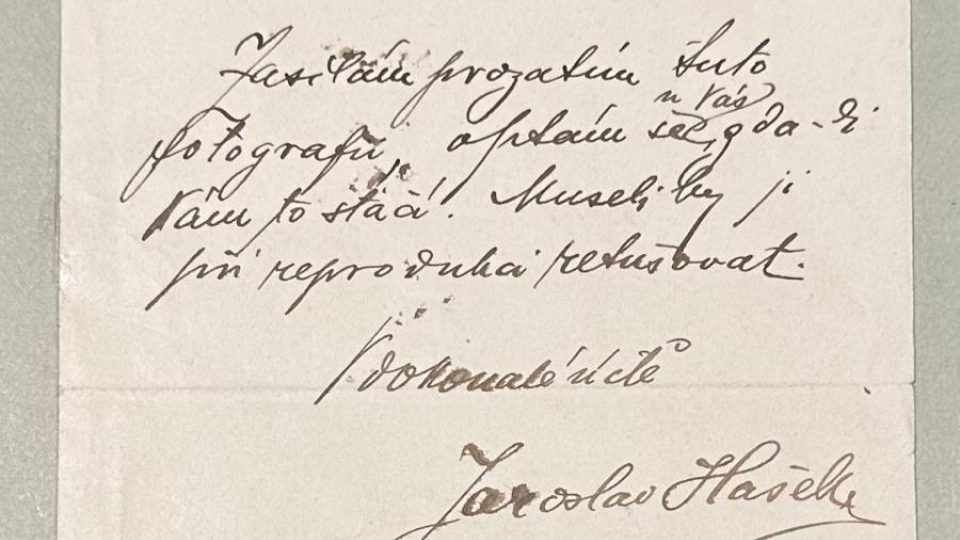 Zasílám prozatím tuto
u Vás
fotografii, optám se, zda-li
Vám to stačí. Museli by ji
při reprodukci retušovat.
V dokonalé úctě
Jaroslav Hašek